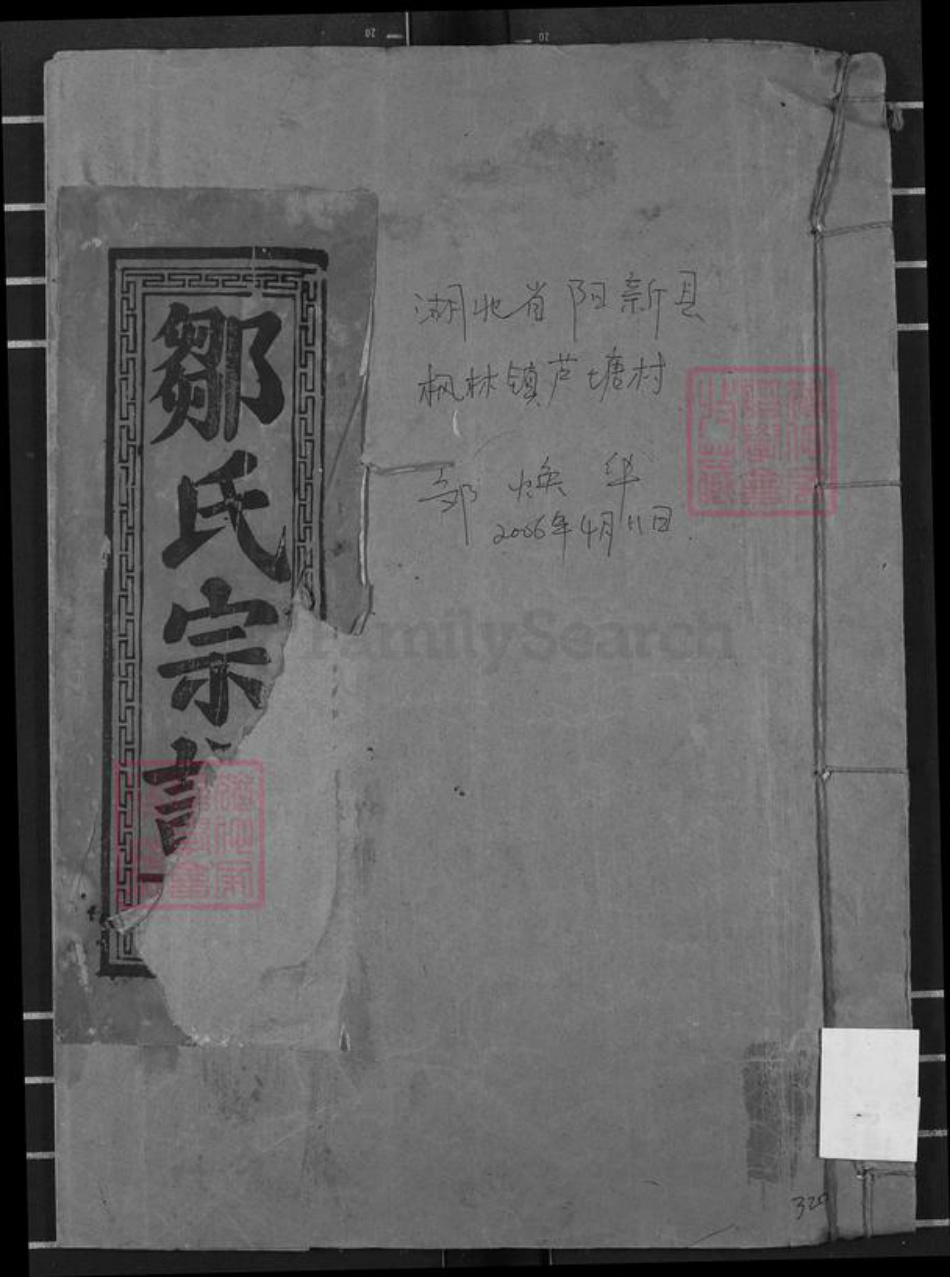 鄒氏宗譜
湖北省阳新县
枫林镇芦塘村
邹焕华
2006年4月11日
FamilySearch
320